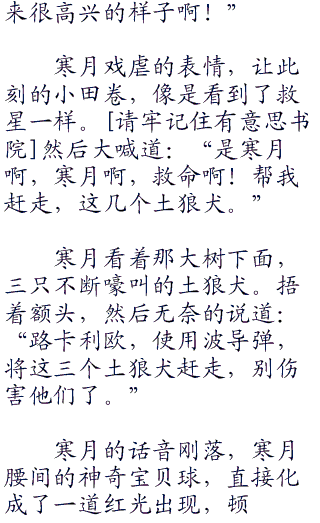 来很高兴的样子啊！”
寒月戏虐的表情，让此
刻的小田卷，像是看到了救
星一样。[请牢记住有意思书
院]然后大喊道：“是寒月
啊，寒月啊，救命啊！帮我
赶走，这几个土狼犬。”
寒月看着那大树下面，
三只不断嚎叫的土狼犬。捂
着额头，然后无奈的说道：
“路卡利欧，使用波导弹，
将这三个土狼犬赶走，别伤
害他们了。”
寒月的话音刚落，寒月
腰间的神奇宝贝球，直接化
成了一道红光出现，顿